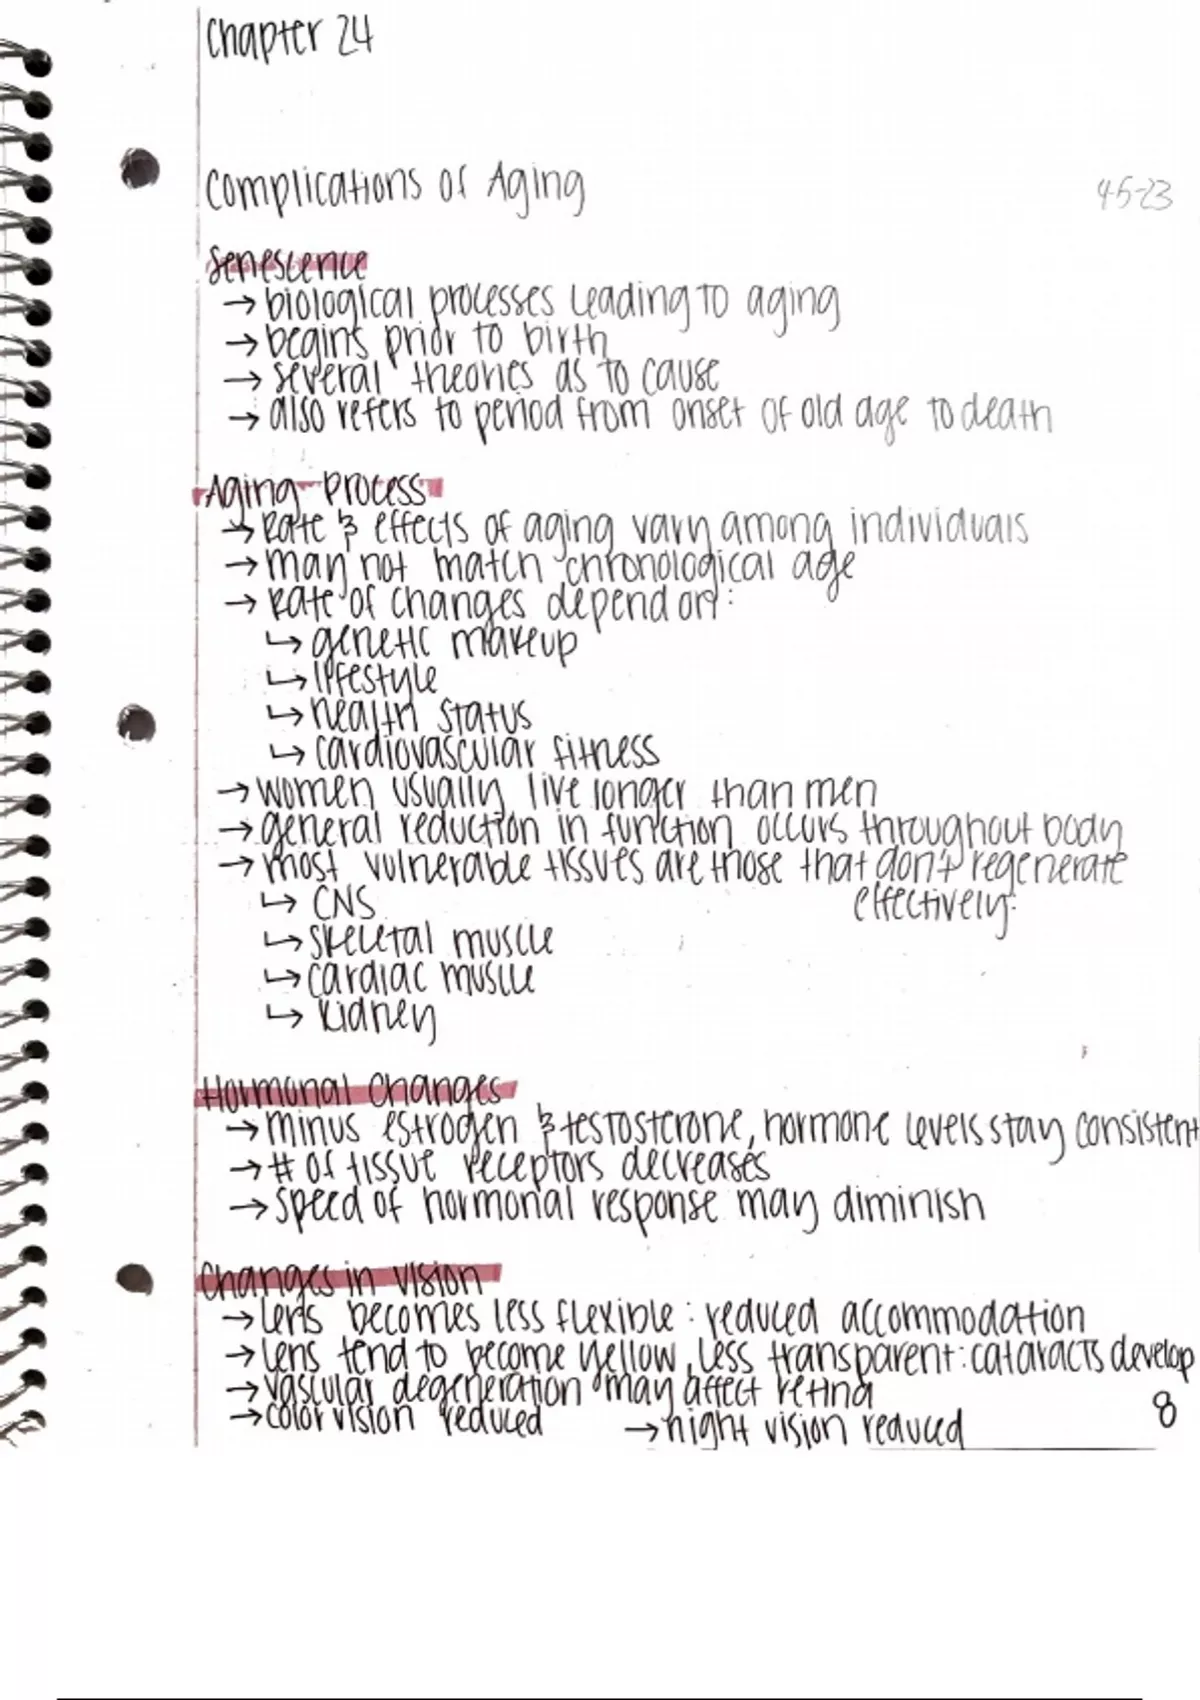 Chapter 24
Complications of Aging
4-5-23
Senescence
→ biological processes leading to aging
→ begins prior to birth
→ several theories as to cause
→ also refers to period from onset of old age to death
Aging Process
→ Rate & effects of aging vary among individuals
→ may not match chronological age
→ Rate of changes depend on:
↳ genetic makeup
↳ lifestyle
↳ health status
↳ cardiovascular fitness
→ women usually live longer than men
→ general reduction in function occurs throughout body
→ most vulnerable tissues are those that don't regenerate
effectively:
↳ CNS
↳ skeletal muscle
↳ cardiac muscle
↳ kidney
Hormonal Changes
→ minus estrogen & testosterone, hormone levels stay consistent
→ # of tissue receptors decreases
→ speed of hormonal response may diminish
Changes in Vision
→ lens becomes less flexible: reduced accommodation
→ lens tend to become yellow, less transparent: cataracts develop
→ vascular degeneration may affect retina
→ color vision reduced → night vision reduced
8